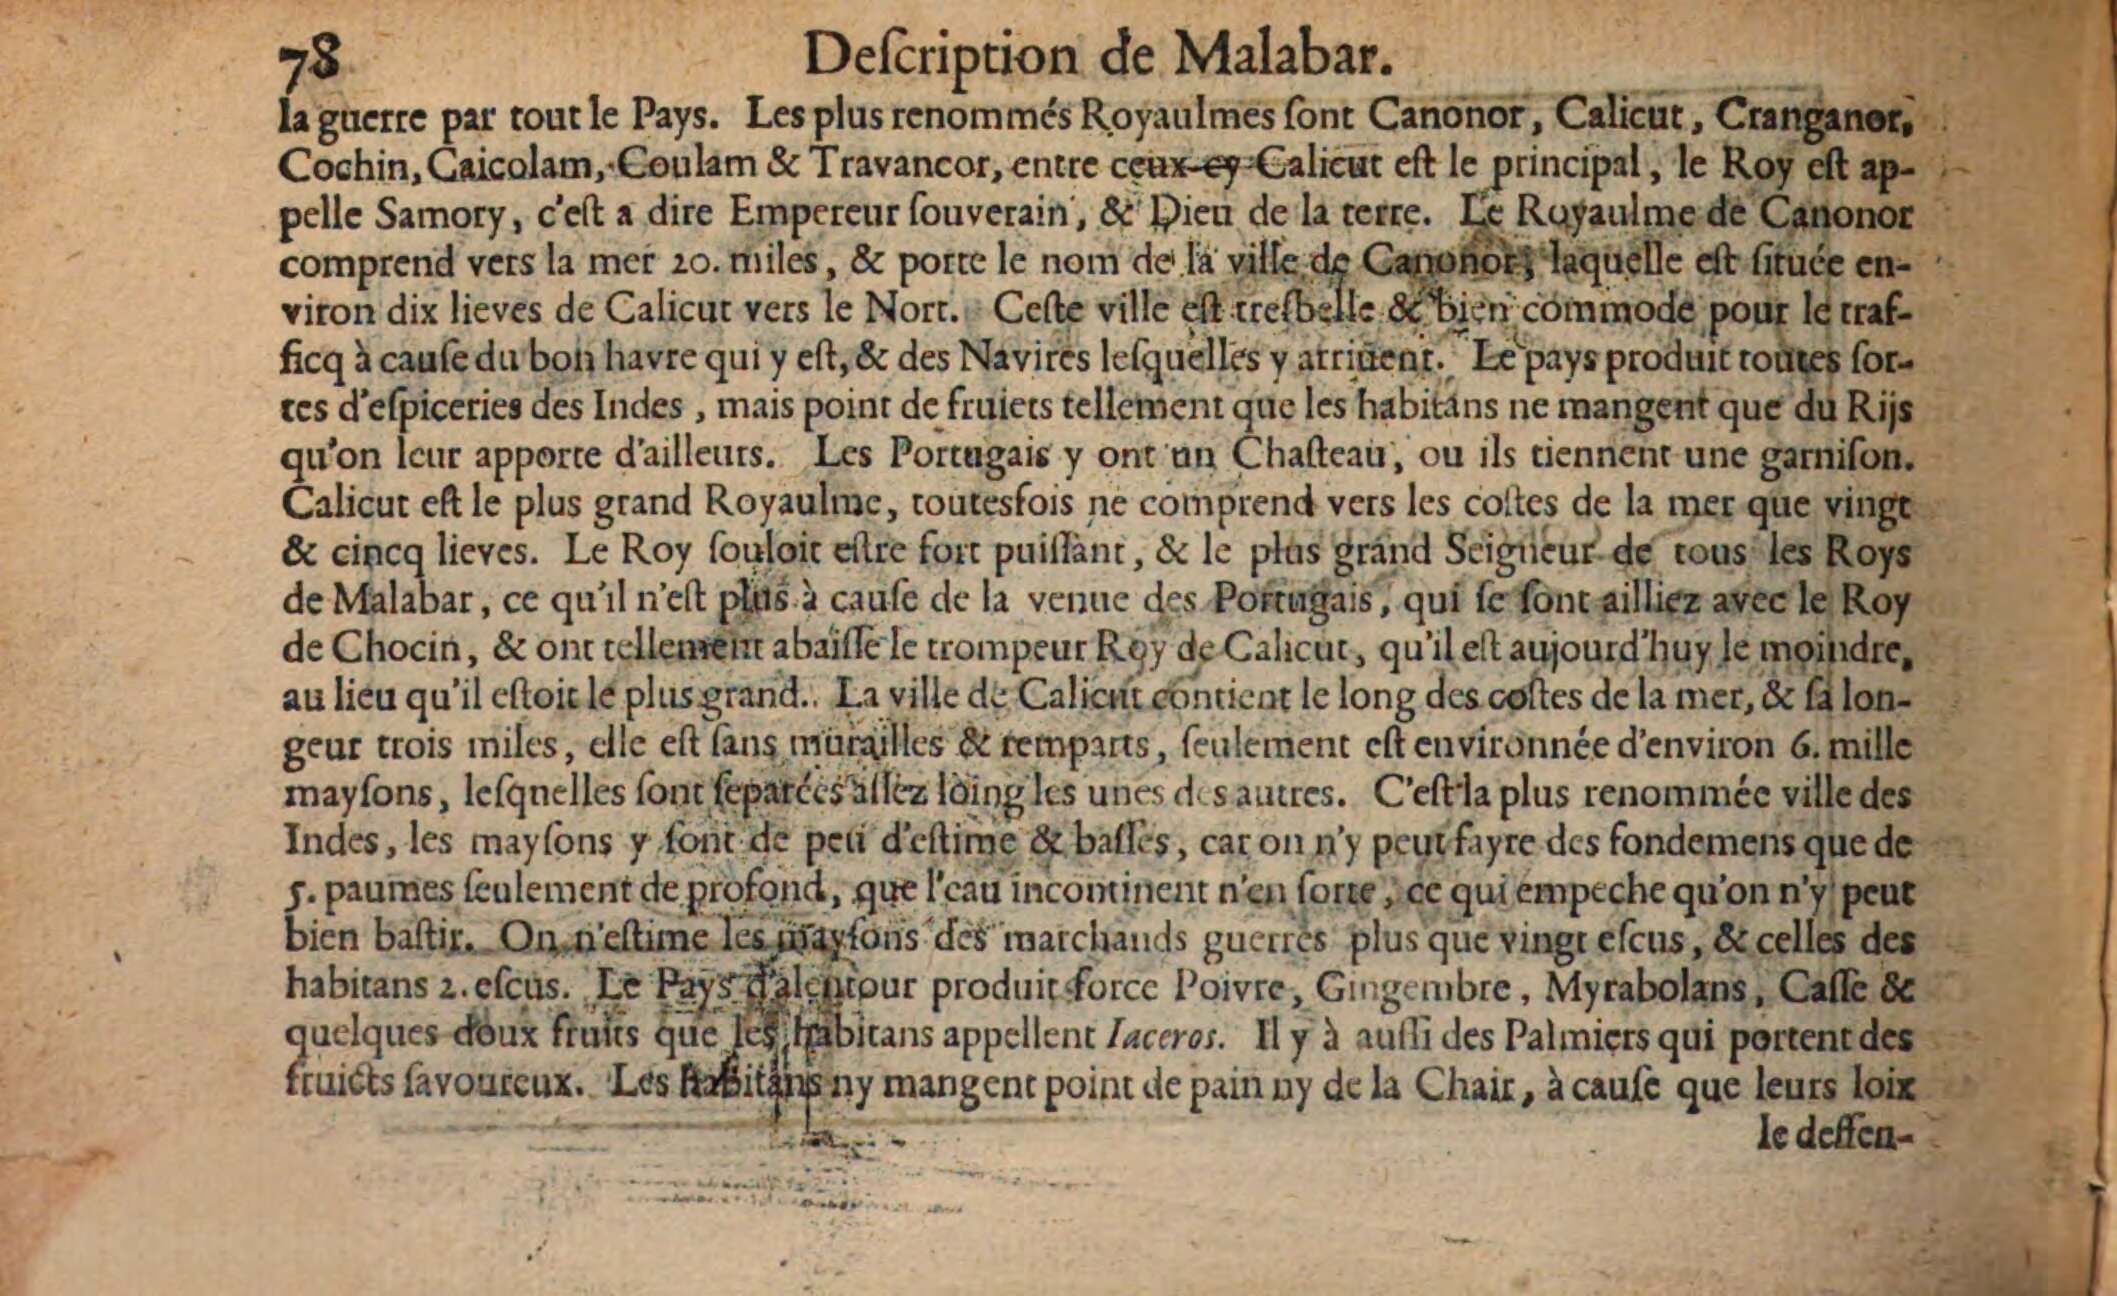 78 Deſcription de Malabar.
la guerre par tout le Pays. Les plus renommés Royaulmes ſont Canonor, Calicut, Cranganor,
Cochin, Caicolam, Coulam & Travancor, entre ceux-cy Calicut eſt le principal, le Roy eſt ap-
pelle Samory, c'eſt a dire Empereur ſouverain, & Dieu de la terre. Le Royaulme de Canonor
comprend vers la mer 20. miles, & porte le nom de la ville de Canonor, laquelle eſt ſituée en-
viron dix lieves de Calicut vers le Nort. Ceſte ville eſt treſbelle & bien commode pour le traf-
ficq à cauſe du bon havre qui y eſt, & des Navires leſquelles y arrivent. Le pays produit toutes ſor-
tes d'eſpiceries des Indes, mais point de fruicts tellement que les habitans ne mangent que du Rijs
qu'on leur apporte d'ailleurs. Les Portugais y ont un Chaſteau, ou ils tiennent une garniſon.
Calicut eſt le plus grand Royaulme, toutesfois ne comprend vers les coſtes de la mer que vingt
& cincq lieves. Le Roy ſouloit eſtre fort puiſſant, & le plus grand Seigneur de tous les Roys
de Malabar, ce qu'il n'eſt plus à cauſe de la venue des Portugais, qui ſe ſont ailliez avec le Roy
de Chocin, & ont tellement abaiſſe le trompeur Roy de Calicut, qu'il eſt aujourd'huy le moindre,
au lieu qu'il eſtoit le plus grand. La ville de Calicut contient le long des coſtes de la mer, & ſa lon-
geur trois miles, elle eſt ſans murailles & remparts, ſeulement eſt environnée d'environ 6. mille
mayſons, leſqnelles ſont ſeparées aſſez loing les unes des autres. C'eſt la plus renommée ville des
Indes, les mayſons y ſont de peu d'eſtime & baſſes, car on n'y peut fayre des fondemens que de
5. paumes ſeulement de profond, que l'eau incontinent n'en ſorte, ce qui empeche qu'on n'y peut
bien baſtir. On n'eſtime les mayſons des marchands guerres plus que vingt eſcus, & celles des
habitans 2. eſcus. Le Pays d'alentour produit force Poivre, Gingembre, Myrabolans, Caſſe &
quelques doux fruits que les habitans appellent Iaceros. Il y à auſſi des Palmiers qui portent des
fruicts ſavoureux. Les habitans ny mangent point de pain ny de la Chair, à cauſe que leurs loix
le deffen-